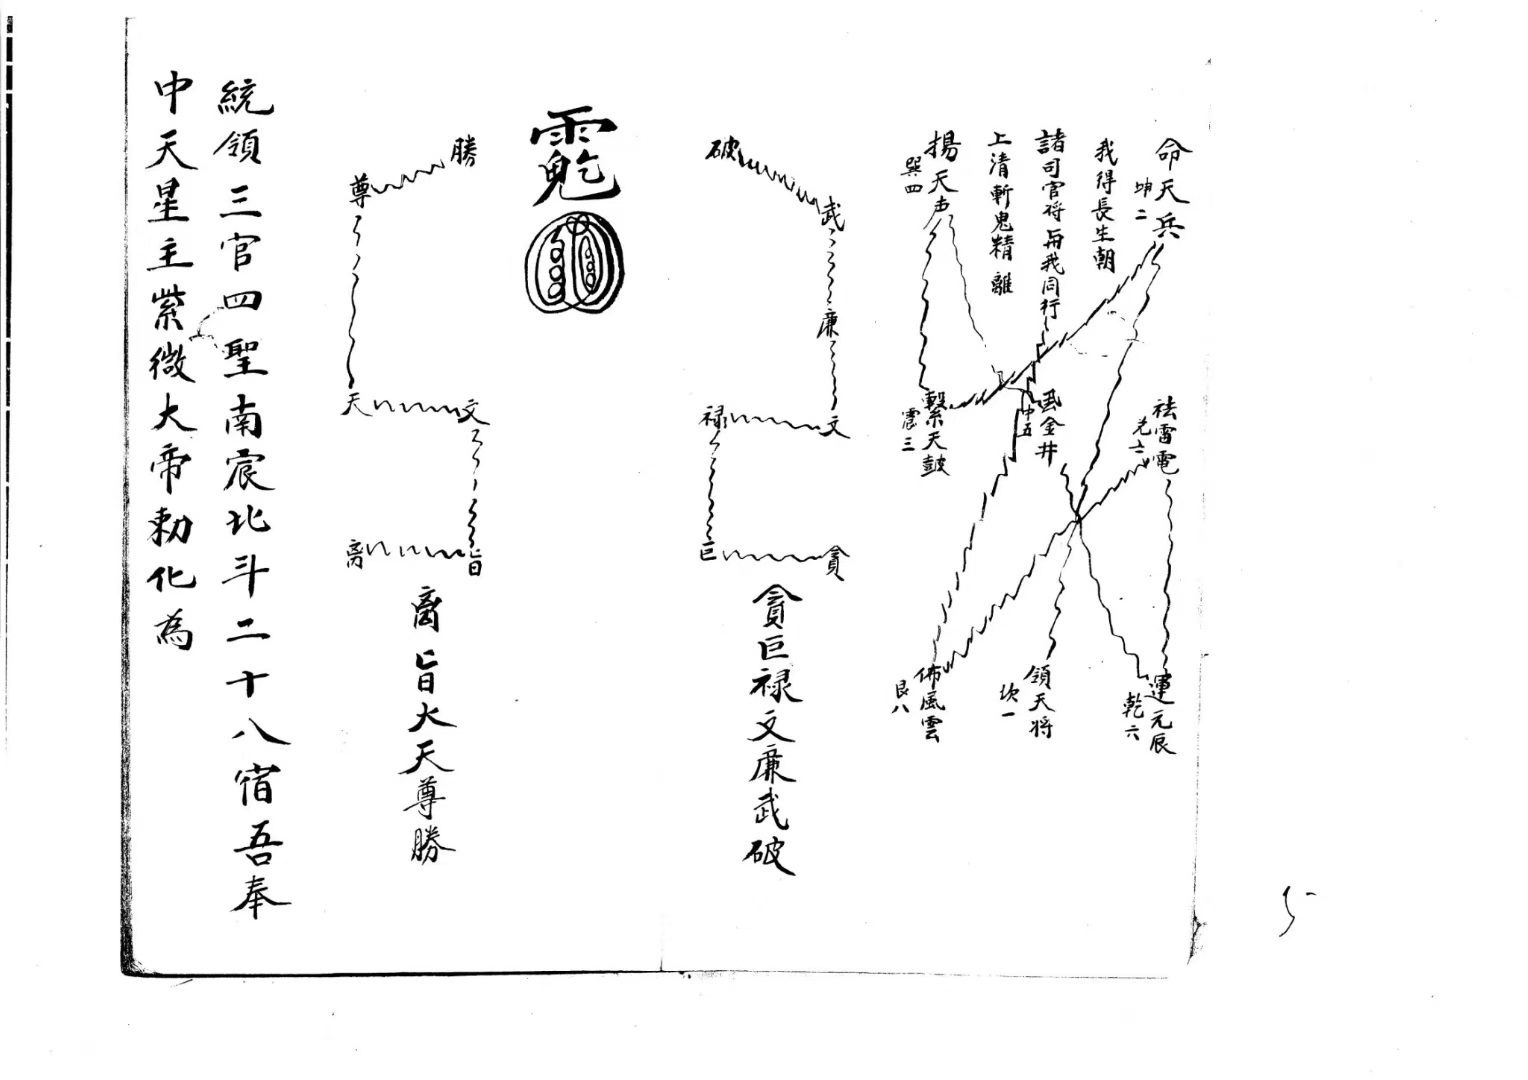 命天兵
坤二
我得長生朝
諸司官将與我同行
上清斬鬼精離
揚天声
巽四
祛雷電
兑七
金井
中五
擊天鼓
震三
運元辰
乾六
領天将
坎一
佈風雲
艮八
破
武
廉
文
禄
巨
貪
貪巨禄文廉武破
勝
尊
天
文
旨
离
离旨大天尊勝
統領三官四聖南宸北斗二十八宿吾奉
中天星主紫微大帝勅化為
5